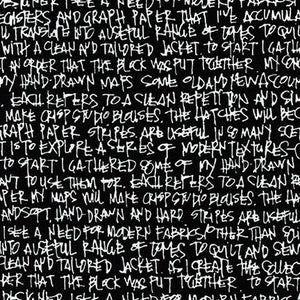 I SEE A NEED FOR MODERN FABRICS
AND GRAPH PAPER THAT I'VE ACCUMULA
TRANSLATE INTO A USEFUL RANGE OF TONES TO QUILT
WITH A CLEAN AND TAILORED JACKET. TO START I GATH
IN ORDER THAT THE BLOCK WAS PUT TOGETHER. MY
MY HAND DRAWN MAPS SOME OLD AND NEW
EACH REFERS TO A CLEAN REPETITION AND SI
MAKE CRISP STUDIO BLOUSES. THE HATCHES WILL BEC
GRAPH PAPER STRIPES ARE USEFUL IN SO MANY SIZE
IT IS TO EXPLORE A SERIES OF MODERN TEXTURES
TO START I GATHERED SOME OF MY HAND DRAWN
ANT TO USE THEM FOR. EACH REFERS TO A CLEAN
APER MY MAPS WILL MAKE CRISP STUDIO BLOUSES. THE HA
AND SOFT, HAND DRAWN AND HARD STRIPES ARE USEFUL
I SEE A NEED FOR MODERN FABRICS OTHER THAN SOL
INTO A USEFUL RANGE OF TONES TO QUILT AND SEW
CLEAN AND TAILORED JACKET. AS I CREATE THE COLLEC
ORDER THAT THE BLOCK WAS PUT TOGETHER TO START
I SEE A NEED FOR MODERN FABRICS